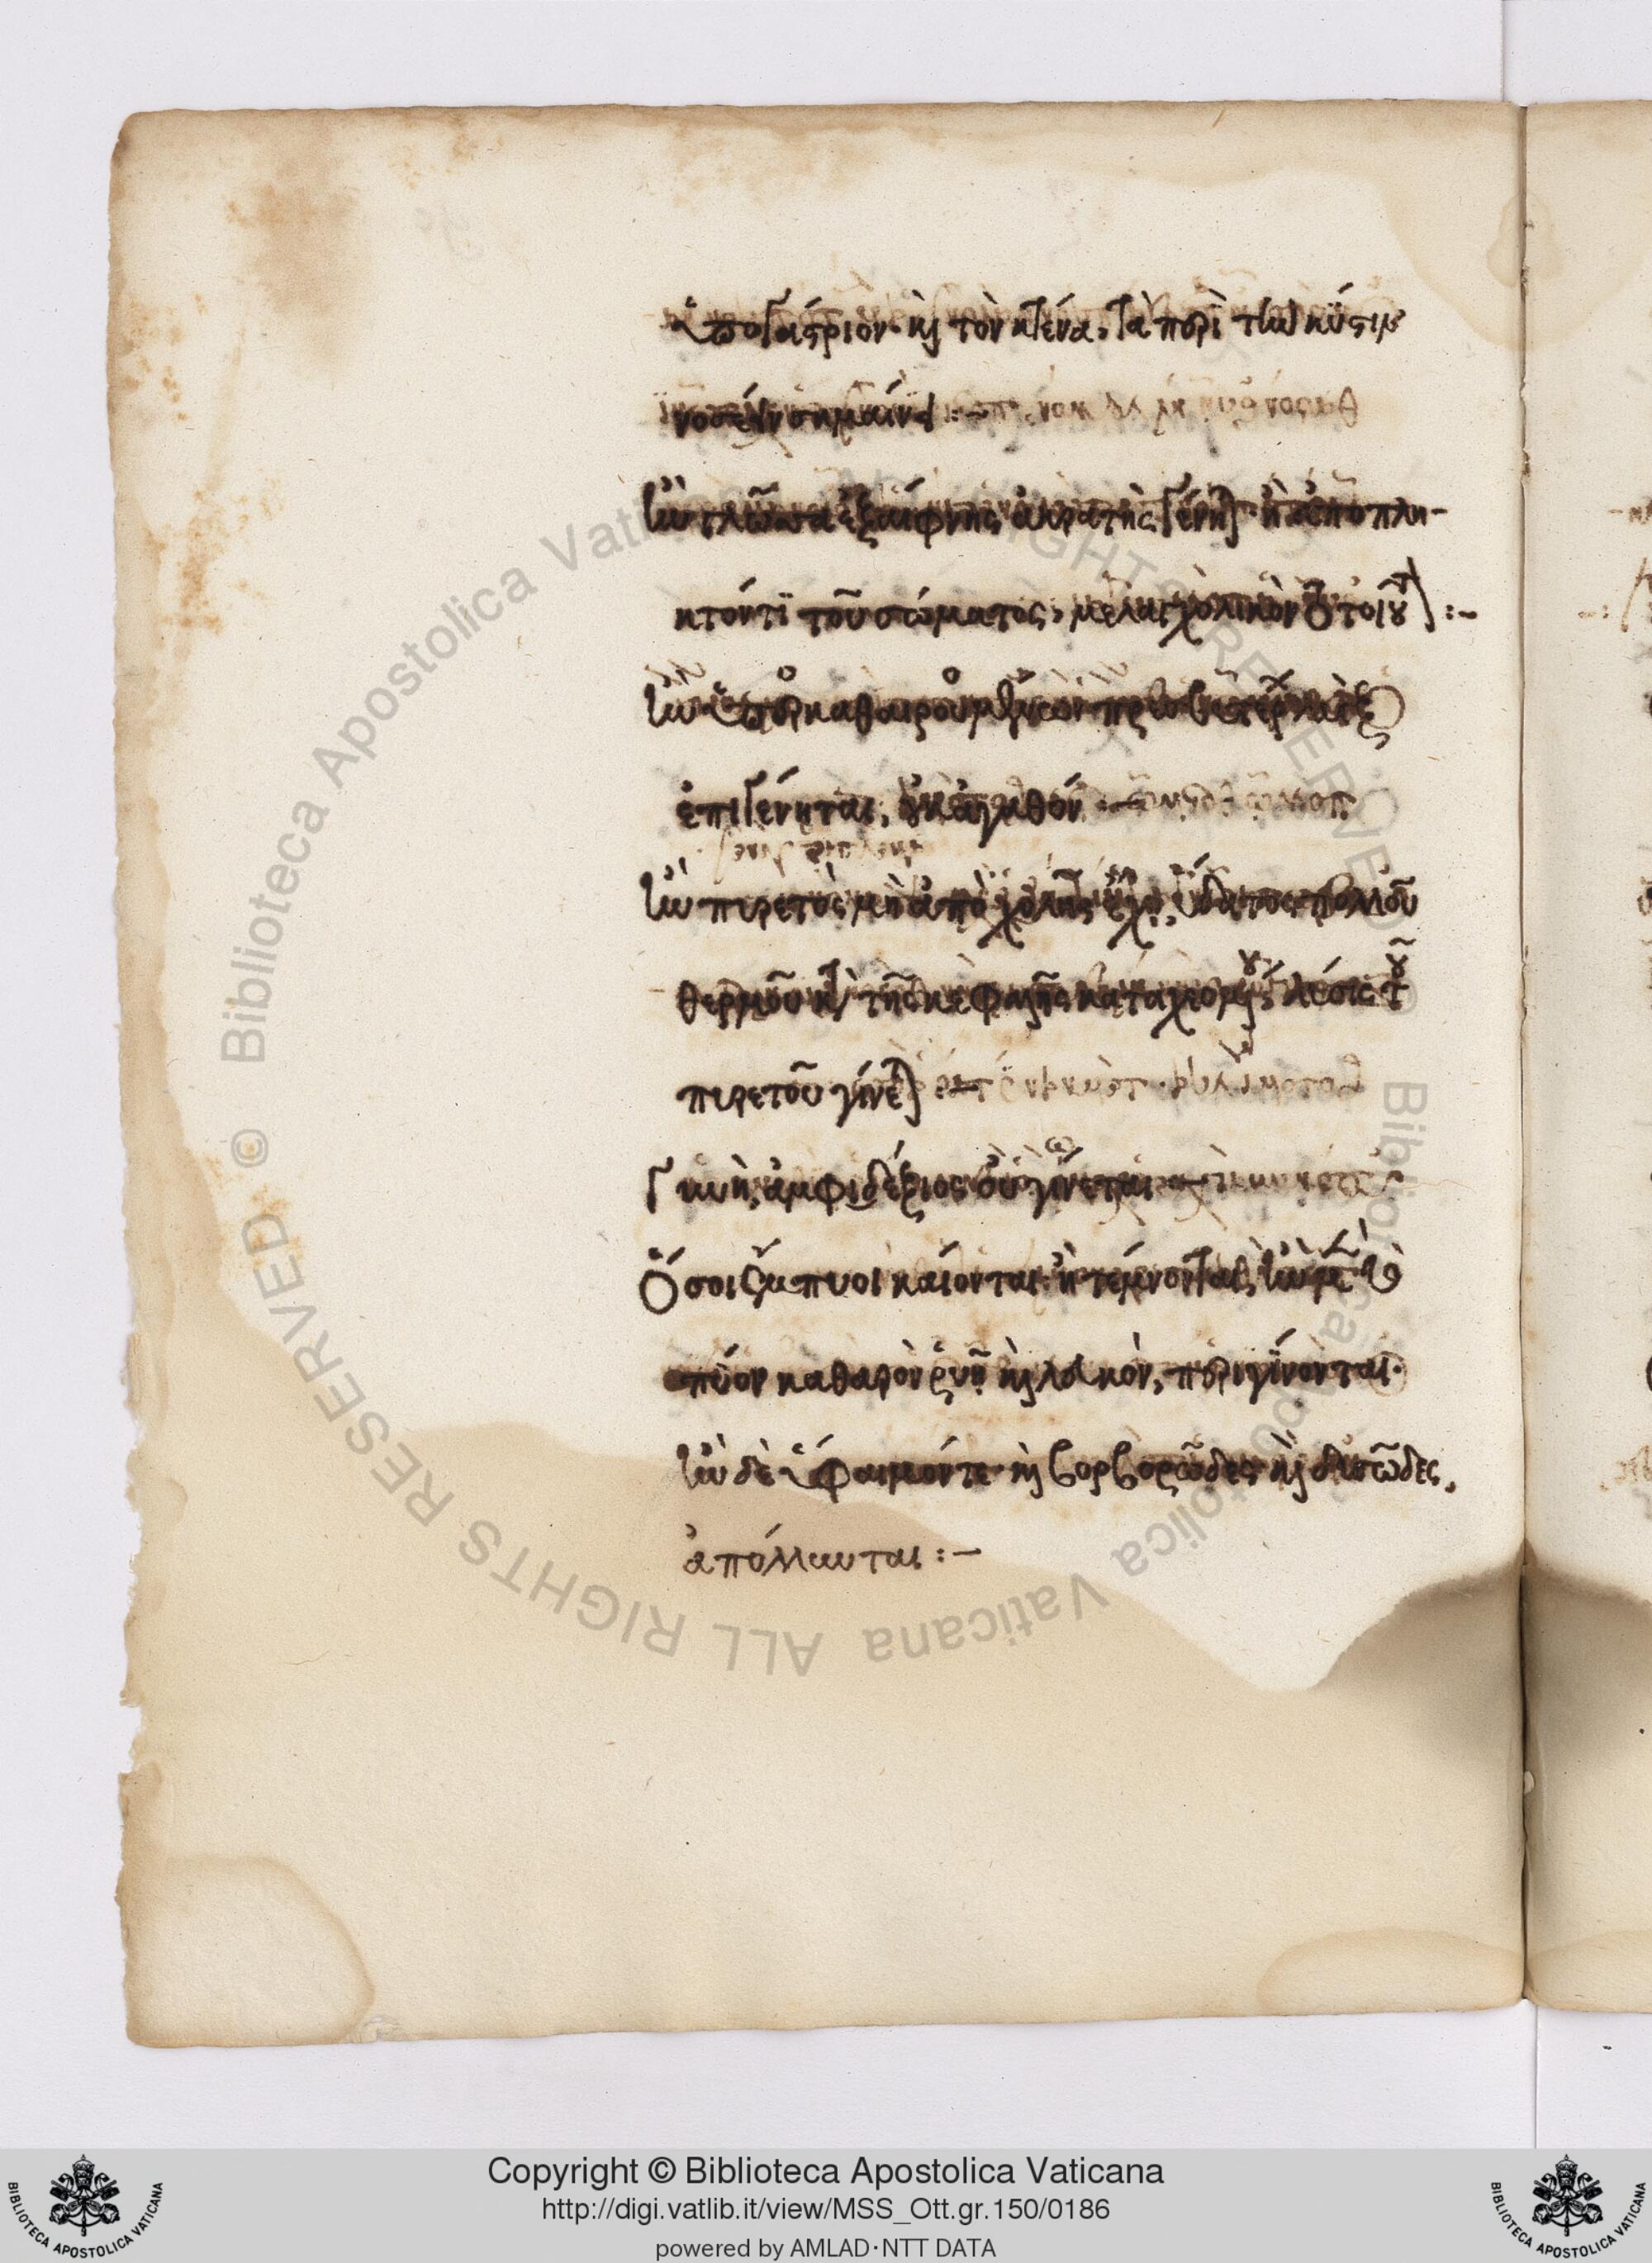 ὑπογάστριον· καὶ τὸν κτένα, τὰ περὶ τὴν κύστιν
νοσέειν σημαίνει :-
ἢν γλῶσσα ἐξαίφνης ἀκρατὴς γένηται· ἢ ἀπόπλη-
κτόν τι τοῦ σώματος, μελαγχολικὸν τὸ τοιοῦτον :-
ἐπιγένηται, οὐκ ἀγαθόν :-
ἢν πυρετὸς μὴ ἀπὸ χολῆς ἔχῃ, ὕδατος πολλοῦ
θερμοῦ κατὰ τῆς κεφαλῆς καταχεομένου, λύσις τοῦ
πυρετοῦ γίνεται :-
Γυνὴ, ἀμφιδέξιος οὐ γίνεται :-
Ὅσοι ἔμπυοι καίονται· ἢ τέμνονται, ἢν μὲν τὸ
πύον καθαρὸν ῥυῇ καὶ λευκόν, περιγίνονται·
ἢν δὲ ὕφαιμόν τε καὶ βορβορῶδες καὶ δυσῶδες,
ἀπόλλυνται :-
© Biblioteca Apostolica Vaticana ALL RIGHTS RESERVED
Copyright © Biblioteca Apostolica Vaticana
http://digi.vatlib.it/view/MSS_Ott.gr.150/0186
powered by AMLAD·NTT DATA
BIBLIOTECA APOSTOLICA VATICANA
BIBLIOTECA APOSTOLICA VATICANA